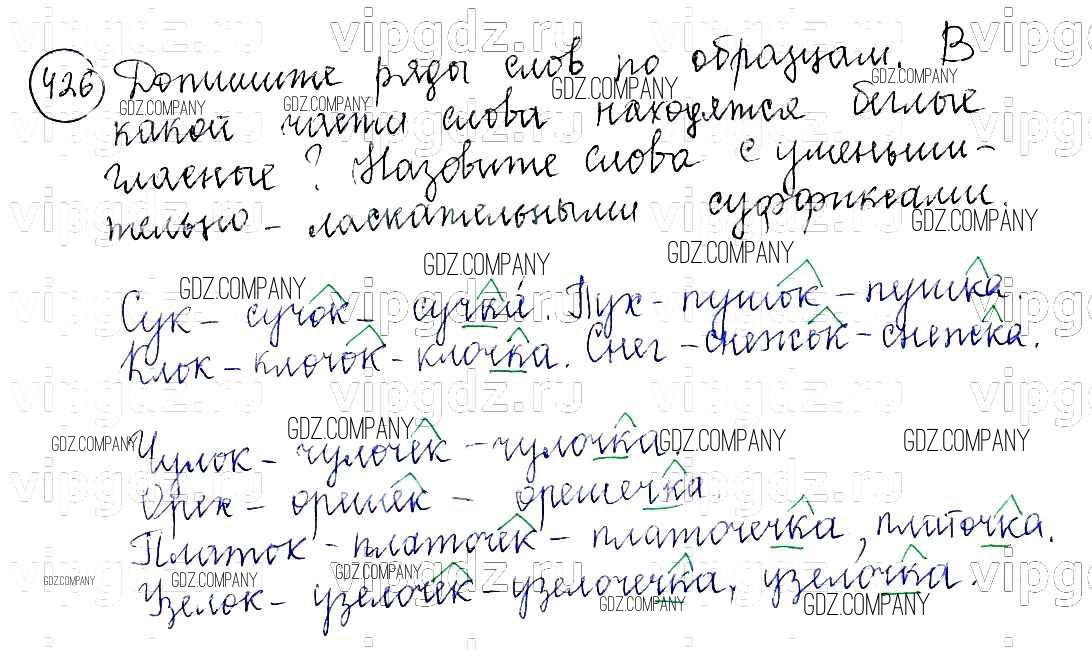 426 Допишите ряды слов по образцам. В
какой части слова находятся беглые
гласные? Назовите слова с уменьши-
тельно-ласкательными суффиксами.
Сук - сучок - сучка́. Пух - пушок - пушка.
Клок - клочок - клочка. Снег - снежок - снежка.
Чулок - чулочек - чулочка.
Орех - орешек - орешечка.
Платок - платочек - платочечка, платочка.
Узелок - узелочек - узелочечка, узелочка.